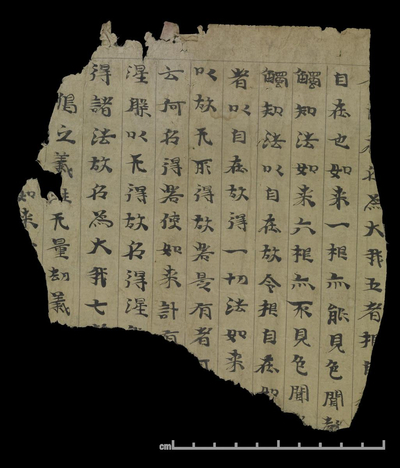 為大我五者根
自在也如来一根亦能見色聞聲
觸知法如来六根亦不見色聞
觸知法以自在故令根自在如
者以自在故得一切法如来
以故无所得故若是有者可
云何名得若使如来計有
涅槃以无得故名得涅
得諸法故名為大我七
偈之義經无量劫義
如来